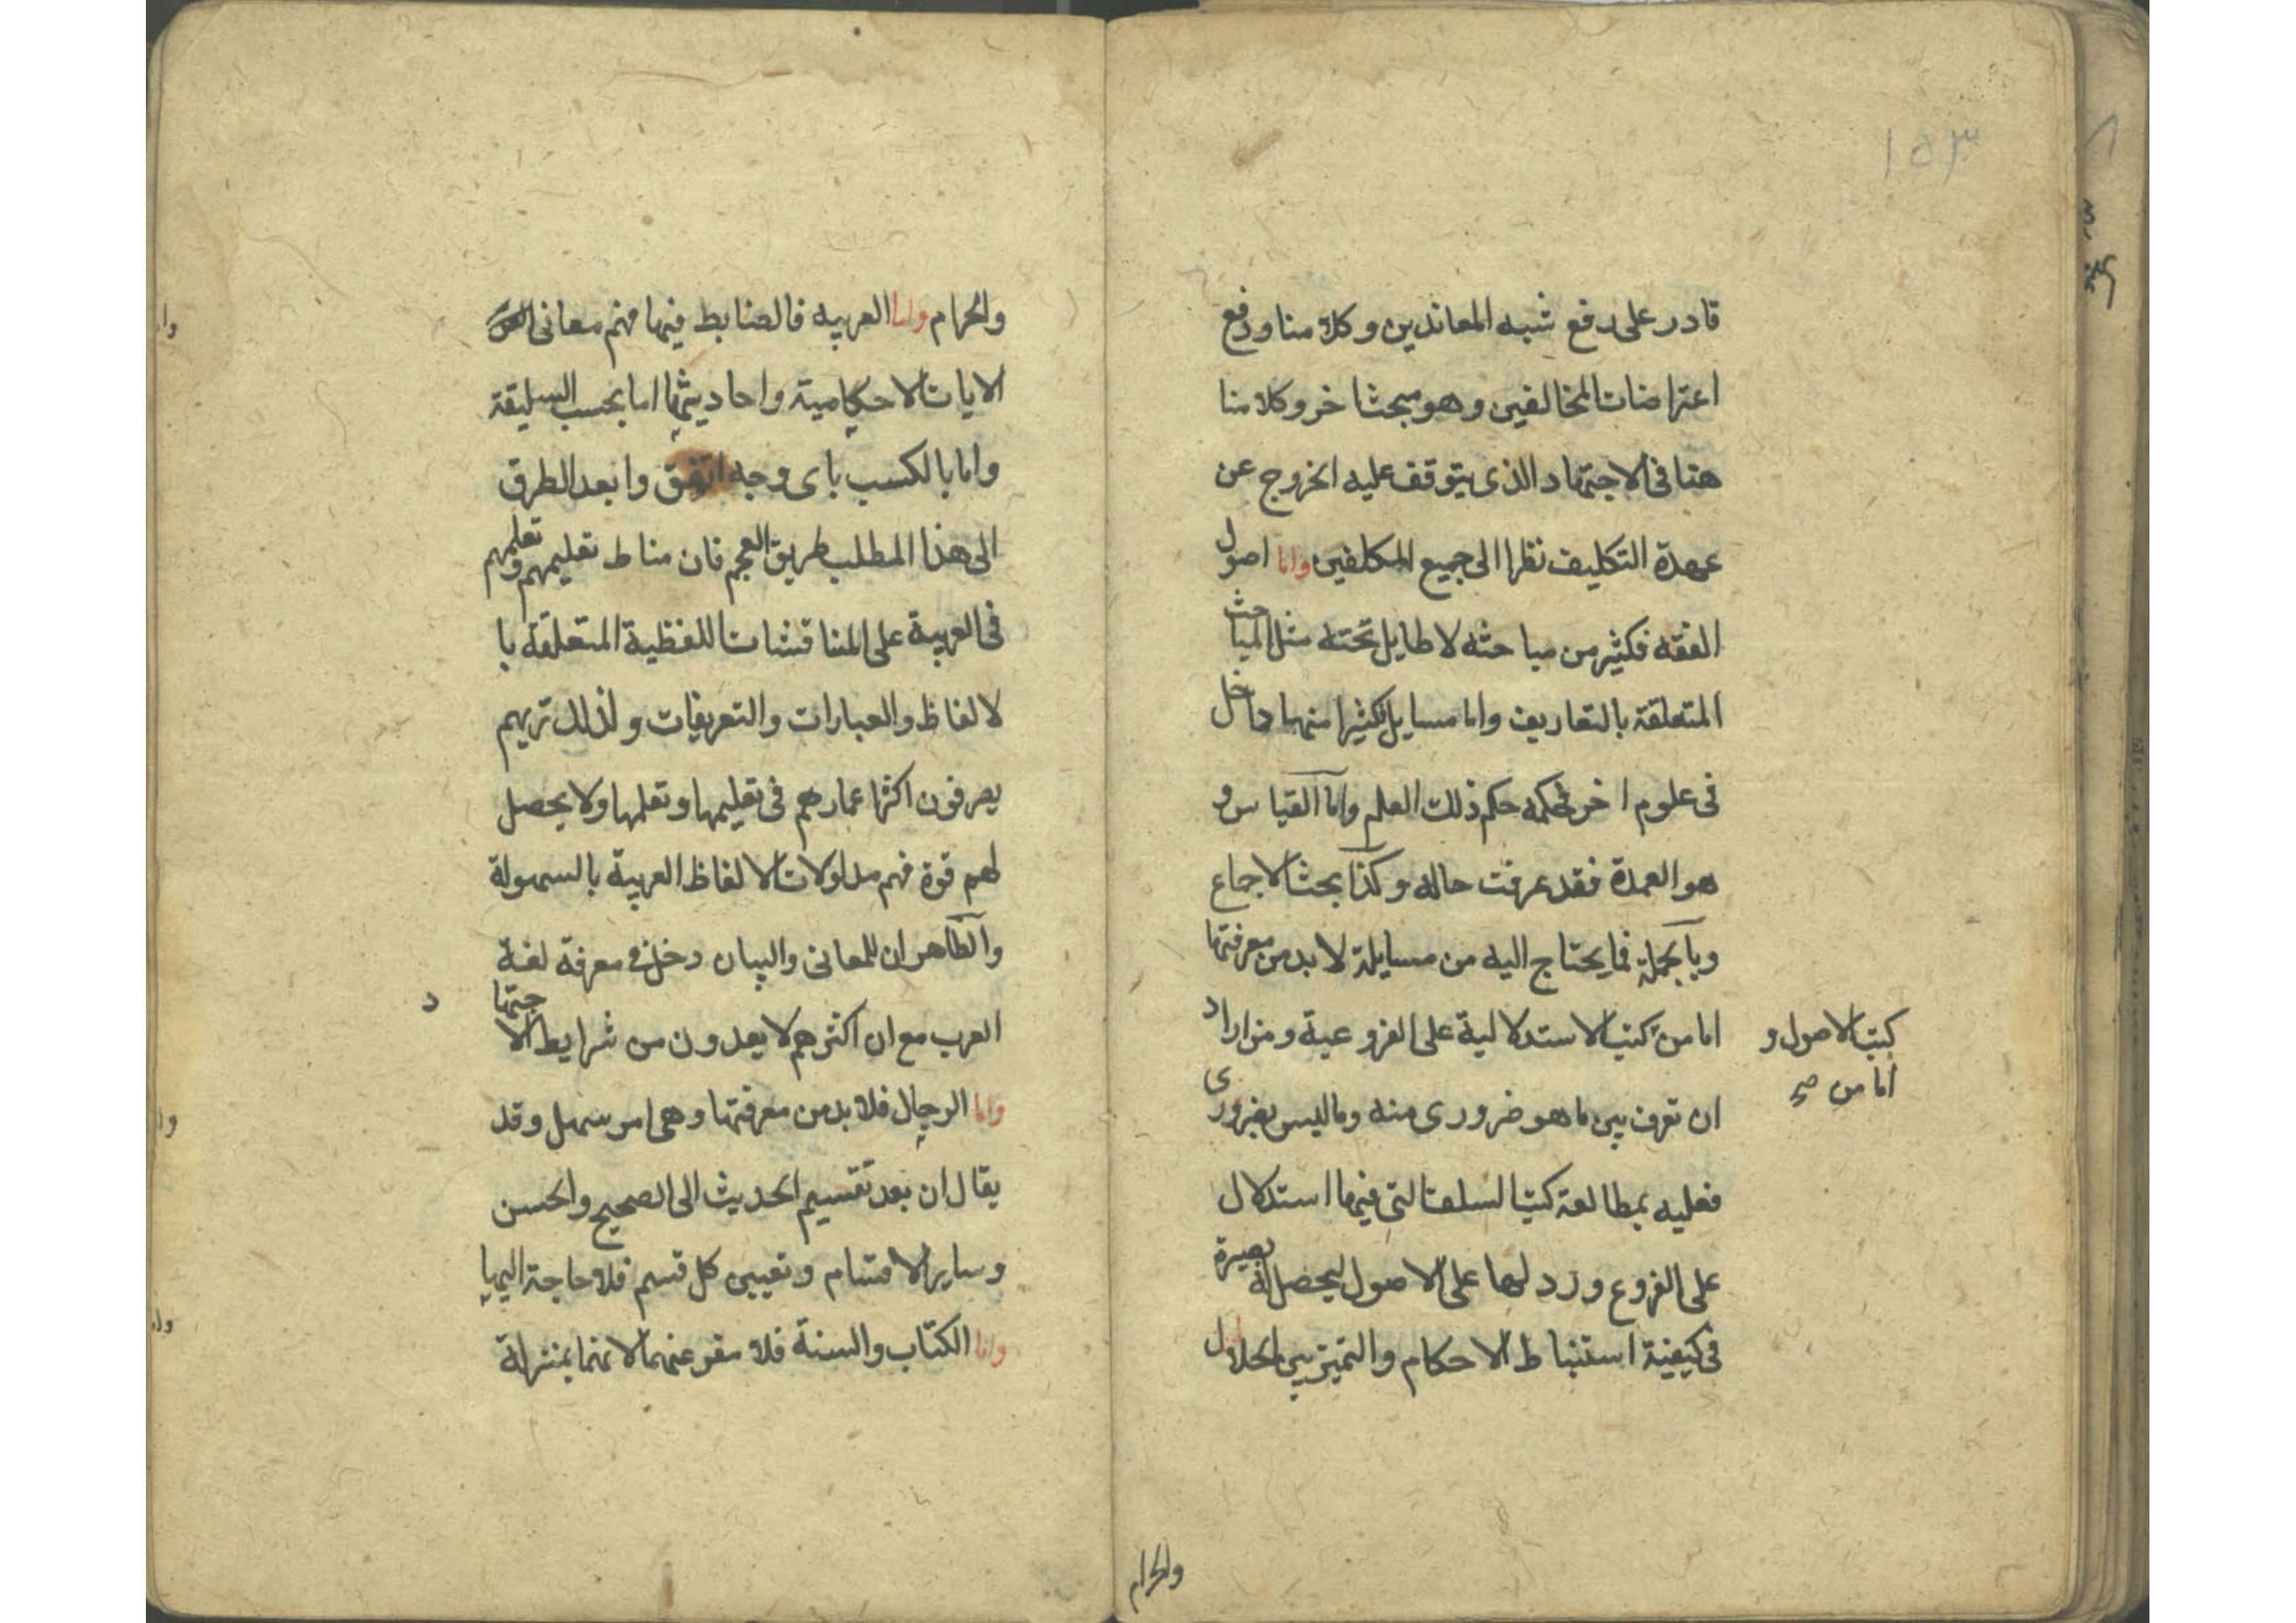 ١٥٣
قادر على دفع شبه المعاندين وكلامنا ودفع
اعتراضات المخالفين وهو مبحث اخر وكلامنا
هنا فى الاجتهاد الذى يتوقف عليه الخروج عن
عهدة التكليف نظرا الى جميع المكلفين واما اصول
الفقه فكثير من مباحثه لا طايل تحته مثل المباحث
المتعلقة بالتعاريف واما مسايل فكثيرا منها داخل
فى علوم اخر فحكمه حكم ذلك العلم واما القياس و
هو العمدة فقد عرفت حاله وكذا بحث الاجماع
وبالجملة فما يحتاج اليه من مسايله لا بد من معرفتها
اما من كتب الاستدلالية على الفروعية ومن اراد
كتب الاصول و
اما من صح
ان تعرف بين ما هو ضرورى منه وما ليس بضرورى
فعليه بمطالعة كتب السلف التى فيها استدلال
على الفروع وردلها على الاصول ليحصل له بصيرة
فى كيفية استنباط الاحكام والتميز بين الحلال
والحرام
والحرام واما العربيه فالضابط فيها فهم معانى
الايات الاحكامية واحاديثها اما بحسب السليقة
واما بالكسب باى وجه اتفق وابعد الطرق
الى هذا المطلب طريق العجم فان مناط تعليمهم وتعلمهم
فى العربية على المناقشات اللفظية المتعلقة با
لالفاظ والعبارات والتعريفات ولذلك تريهم
يصرفون اكثر اعمارهم فى تعليمها وتعلمها ولا يحصل
لهم قوة فهم مدلولات الالفاظ العربية بالسهولة
والظاهر ان للمعانى والبيان دخل فى معرفة لغة
العرب مع ان اكثرهم لا يعدون من شرايط الاجتها
د
واما الرجال فلا بد من معرفتها وهى امر سهل وقد
يقال ان بعد تقسيم الحديث الى الصحيح والحسن
وساير الاقسام وتعيين كل قسم فلا حاجة اليها
واما الكتاب والسنة فلا مفر عنهما لانهما بمنزلة